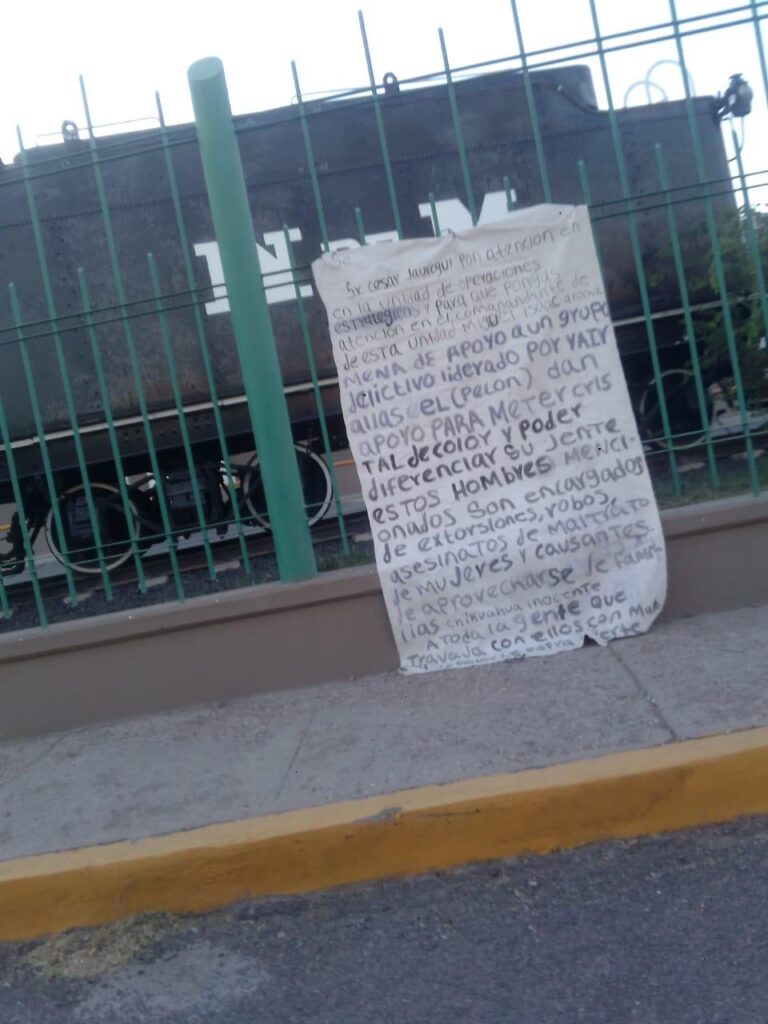 N M
Sr cesar Jauregui pon atencion en
en la unidad de operaciones
estrategicas y Para que pongas
atencion en el comanandante de
de esta unidad Miguel Isaac
MENA DE APOYO a un grupo
delictivo liderado por YAIR
alias el (Pelon) dan
apoyo PARA METER CRIS
TAL de color y Poder
diferenciar su Jente
estos HOMBRES Menci-
onados son encargados
de extorsiones, robos,
asesinatos de Maltrato
de mujeres y causantes
de aprovecharse de Fami-
lias chihuahua inocente
A toda la gente que
Travaja con ellos con